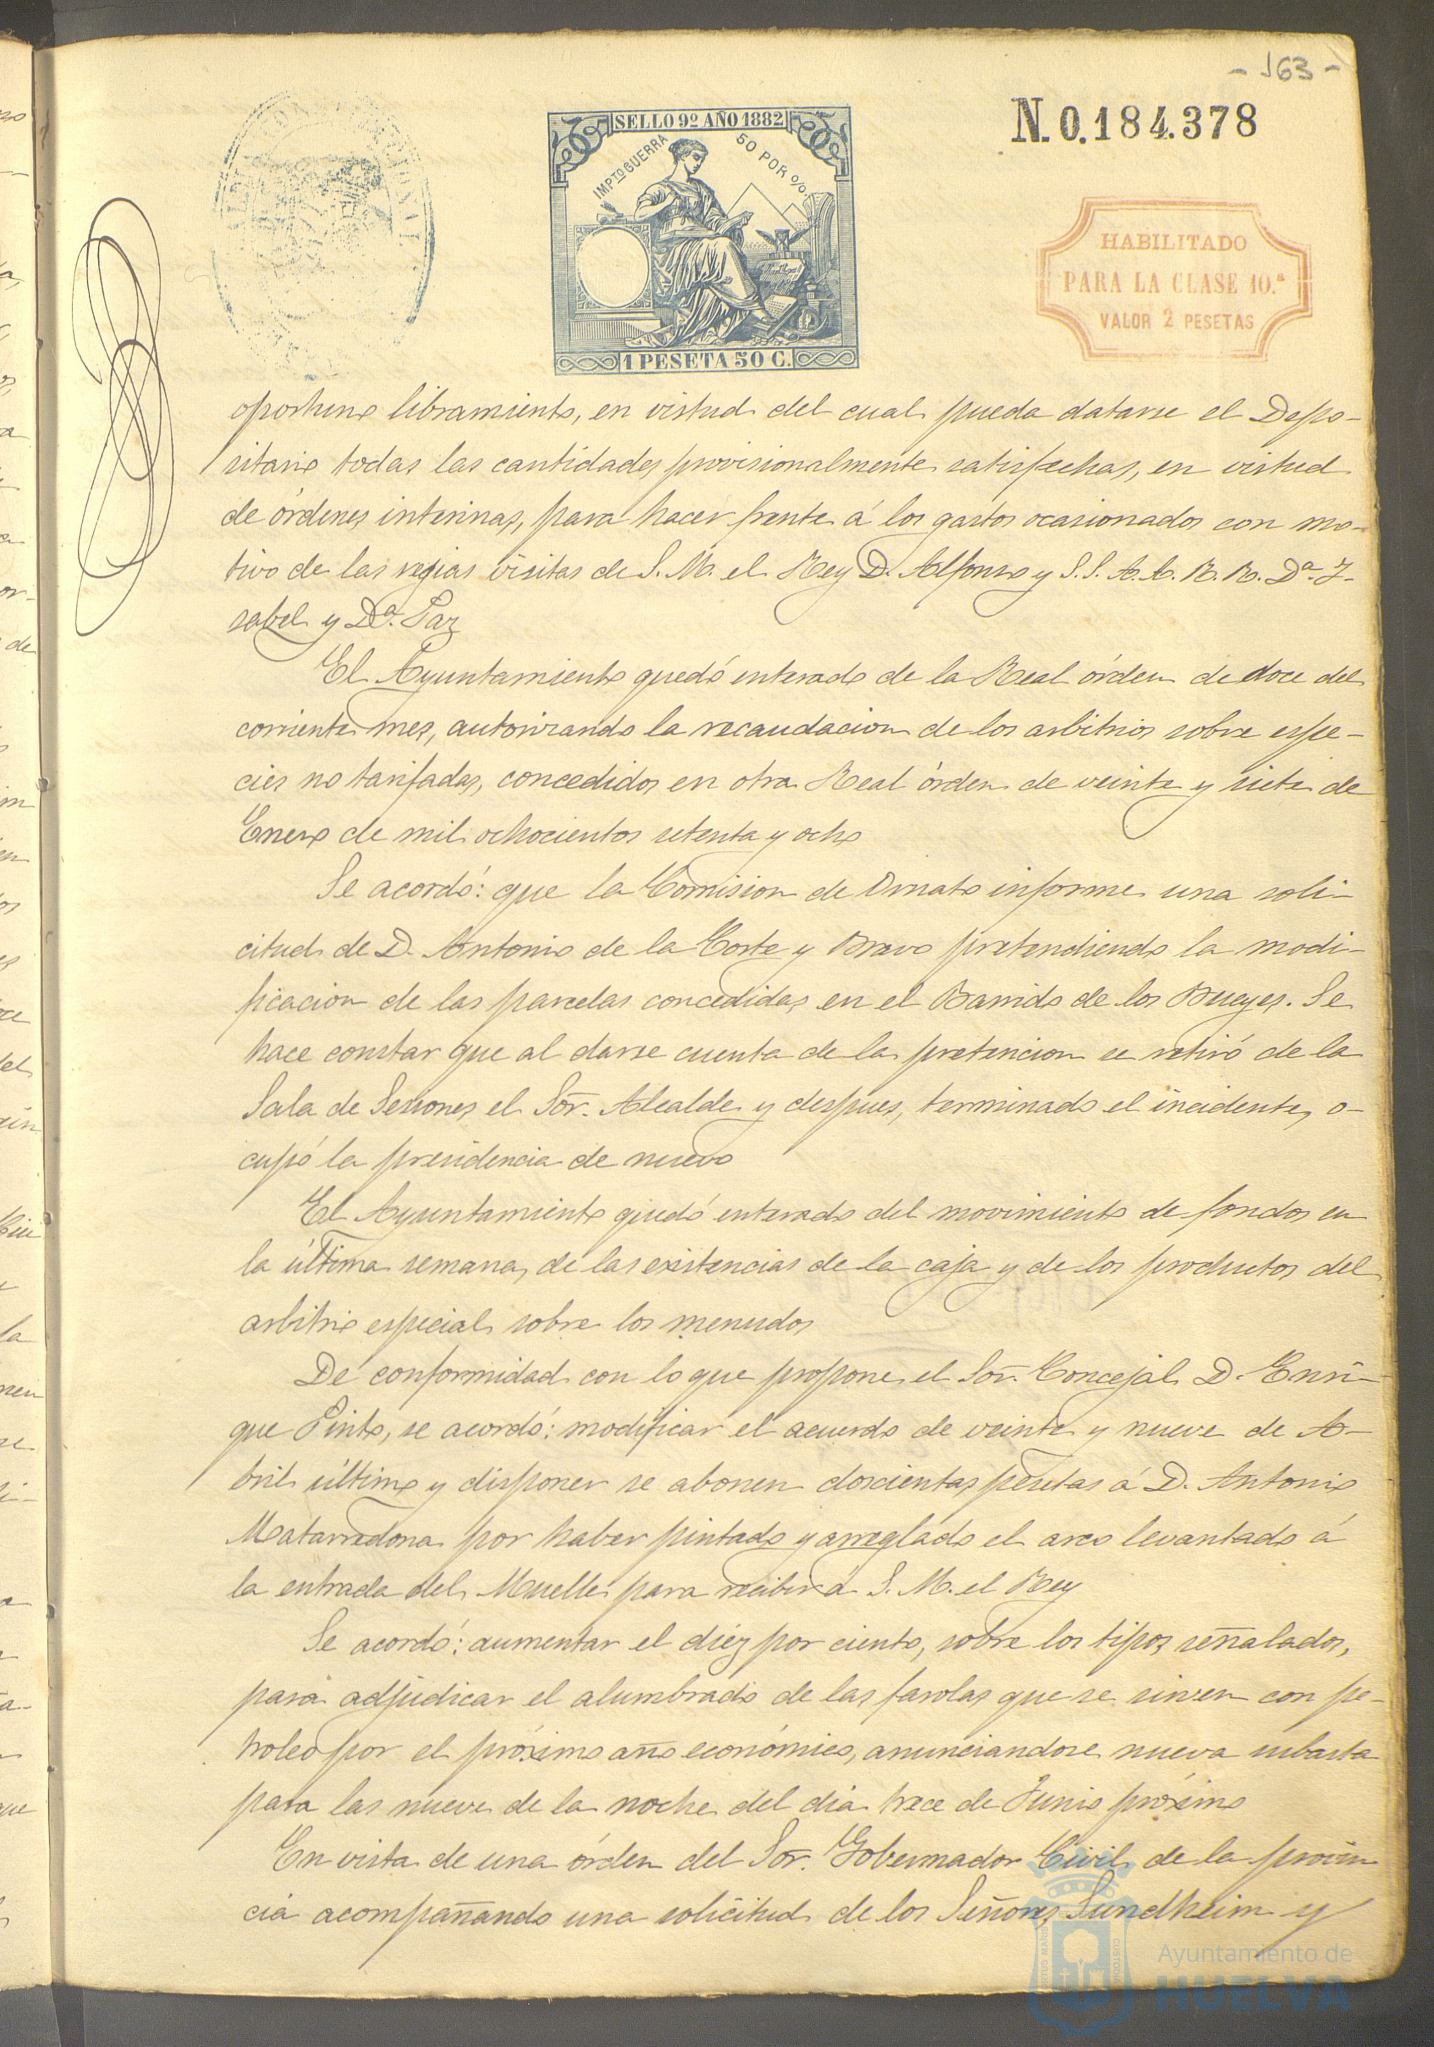 - 163 -
SELLO 9º AÑO 1882
IMPTO GUERRA 50 POR 0/0.
1 PESETA 50 C.
N. 0.184.378
HABILITADO
PARA LA CLASE 10.ª
VALOR 2 PESETAS
oportuno libramiento, en virtud del cual pueda datarse el Depo-
sitario todas las cantidades provisionalmente satisfechas, en virtud
de órdenes interinas, para hacer frente á los gastos ocasionados con mo-
tivo de las regias visitas de S. M. el Rey D. Alfonso y S. S. A. A. R. R. Dª. I-
sabel y Dª. Paz
El Ayuntamiento quedó enterado de la Real órden de doce del
corriente mes, autorizando la recaudacion de los arbitrios sobre espe-
cies no tarifadas, concedidos en otra Real órden de veinte y siete de
Enero de mil ochocientos setenta y ocho
Se acordó: que la Comision de Ornato informe una soli-
citud de D. Antonio de la Corte y Bravo pretendiendo la modi-
ficacion de las parcelas concedidas en el Barrido de los Bueyes. Se
hace constar que al darse cuenta de la pretencion se retiró de la
Sala de Sesiones el Sor. Alcalde y despues, terminado el incidente, o-
cupó la presidencia de nuevo
El Ayuntamiento quedó enterado del movimiento de fondos en
la última semana, de las existencias de la caja y de los productos del
arbitrio especial sobre los menudos
De conformidad con lo que propone el Sor. Concejal D. Enri-
que Pinto, se acordó: modificar el acuerdo de veinte y nueve de A-
bril último y disponer se abonen doscientas pesetas á D. Antonio
Matarredona por haber pintado y arreglado el arco levantado á
la entrada del Muelle para recibir á S. M. el Rey
Se acordó: aumentar el diez por ciento, sobre los tipos señalados,
para adjudicar el alumbrado de las farolas que se sirven con pe-
troleo por el próximo año económico, anunciandose nueva subasta
para las nueve de la noche del dia trece de Junio próximo
En vista de una órden del Sor. Gobernador Civil de la provin
cia acompañando una solicitud de los Señores Sundheim y
Ayuntamiento de
HUELVA